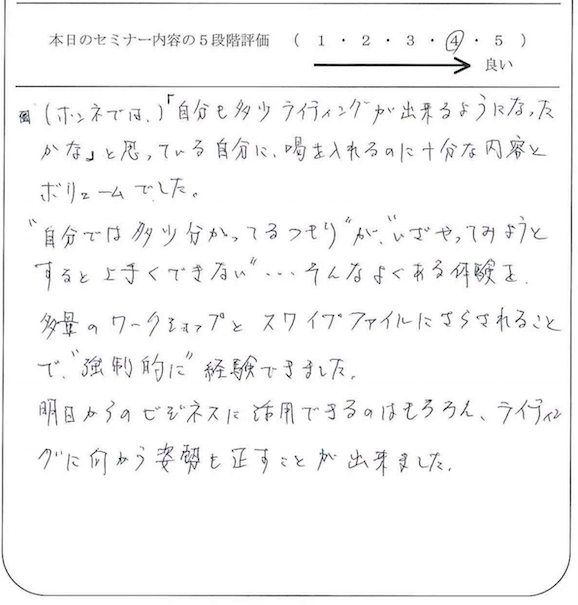 本日のセミナー内容の5段階評価 ( 1 ・ 2 ・ 3 ・ 4 ・ 5 )
良い
(ホンネでは、)「自分も多少ライティングが出来るようになった
かな」と思っている自分に、喝を入れるのに十分な内容と
ボリュームでした。
"自分では多少分かってるつもり"が、"いざやってみようと
すると上手くできない"・・・そんなよくある体験を、
多量のワークショップとスワイプファイルにさらされること
で、"強制的に"経験できました。
明日からのビジネスに活用できるのはもちろん、ライティン
グに向かう姿勢も正すことが出来ました。